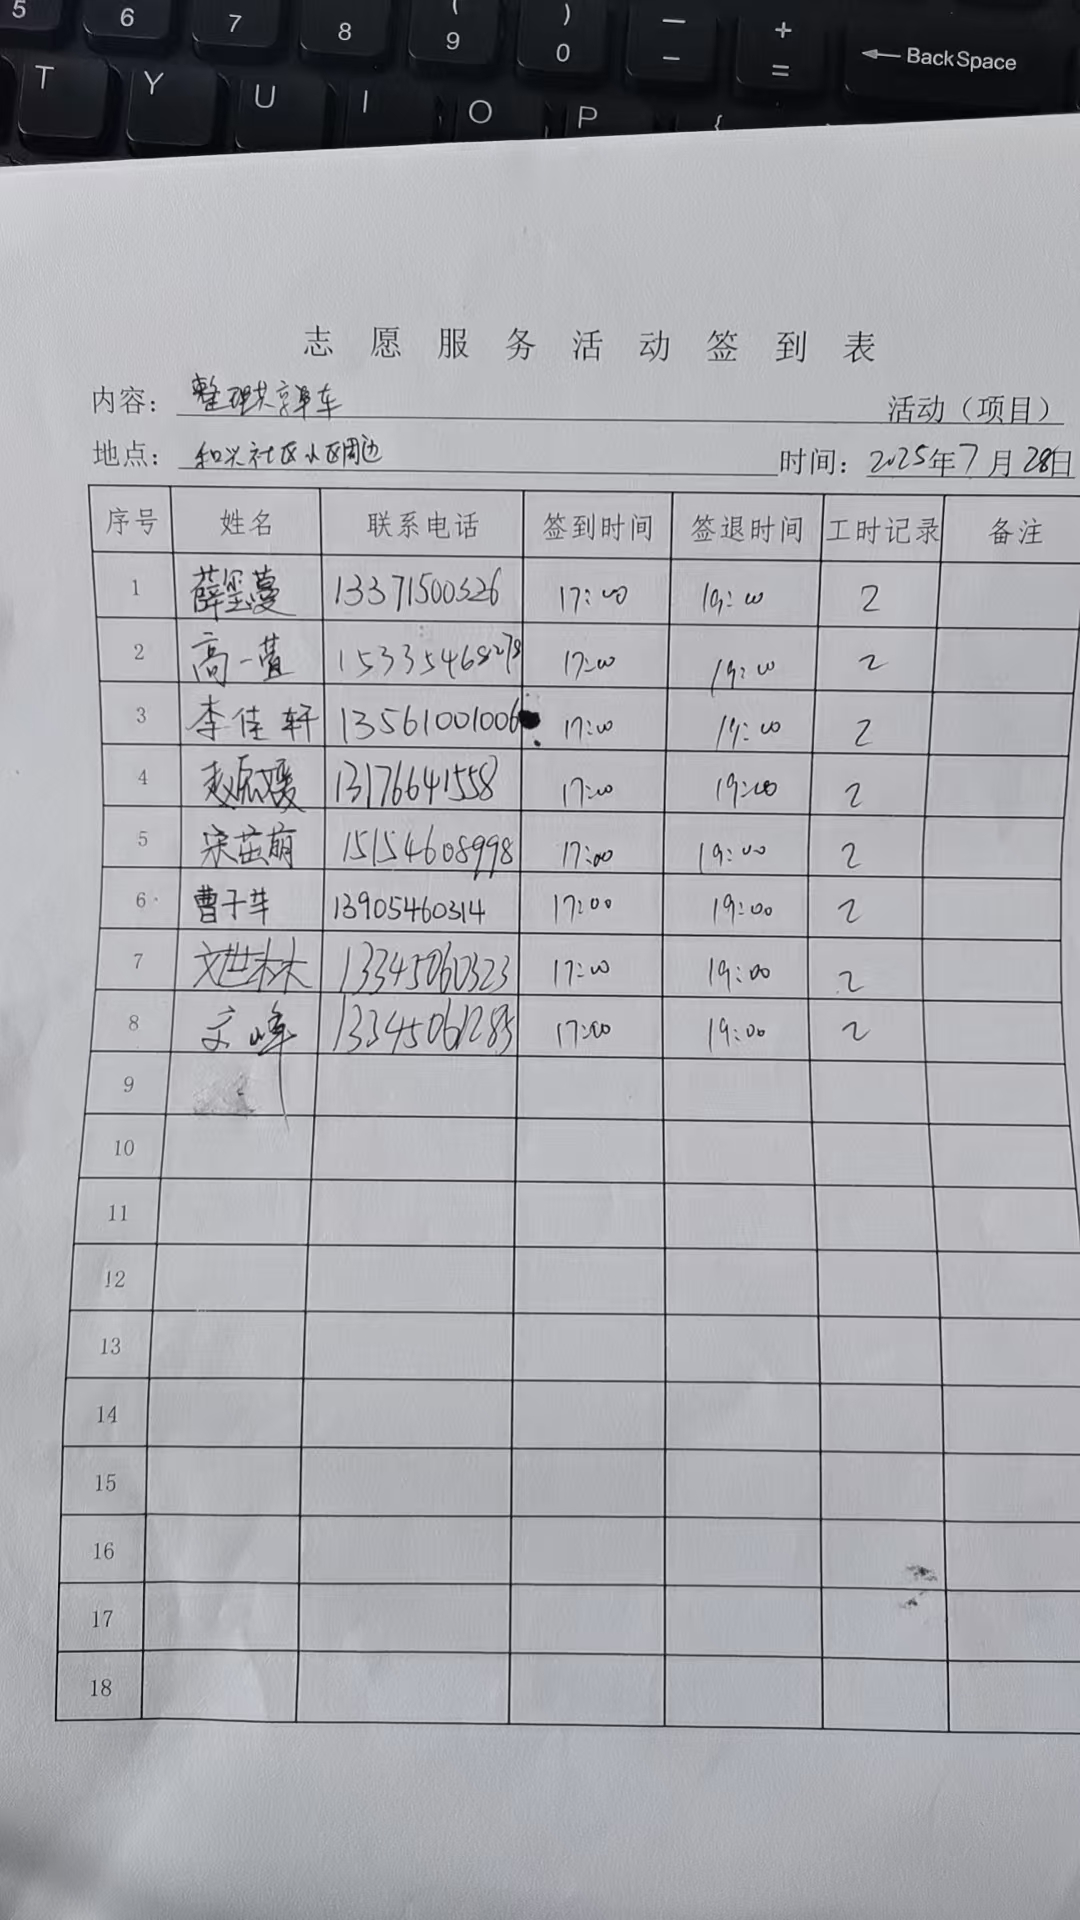 5 6 7 8 ( 9 ) 0 — – + = ← BackSpace
T Y U I O P {
志愿服务活动签到表
内容：整理共享单车 活动（项目）
地点：和兴社区小区周边 时间：2025年7月28日
序号 姓名 联系电话 签到时间 签退时间 工时记录 备注
1 薛玺蔓 13371500326 17:00 19:00 2
2 高一萱 15335468278 17:00 19:00 2
3 李佳轩 13561001006 17:00 19:00 2
4 赵 媛 13176641558 17:00 19:00 2
5 宋茁萌 15154608998 17:00 19:00 2
6 曹子苹 13905460314 17:00 19:00 2
7 文世林 13345060323 17:00 19:00 2
8 文峰 13345061285 17:00 19:00 2
9
10
11
12
13
14
15
16
17
18